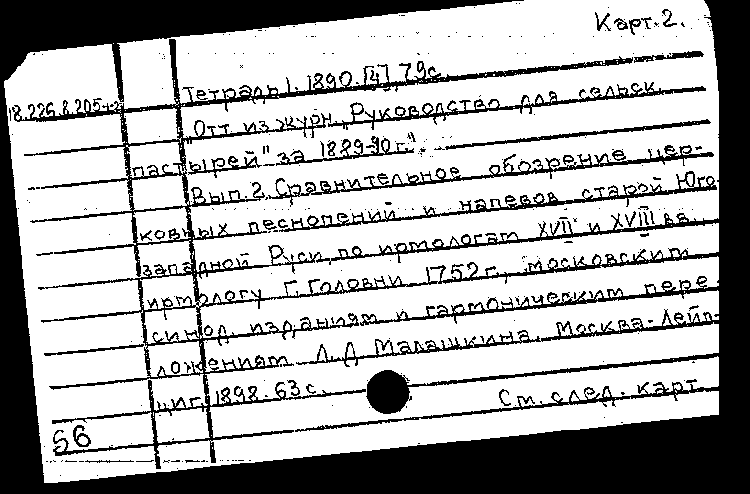 Карт. 2.
18.226.8.205-1-2
Тетрадь 1. 1890. [4], 79с.
"Отт. из журн. „Руководство для сельск.
пастырей" за 1889-90 г.".
Вып. 2. Сравнительное обозрение цер-
ковных песнопений и напевов старой Юго-
западной Руси, по ирмологам XVII и XVIII вв.,
ирмологу Г. Головни 1752 г., московским
синод. изданиям и гармоническим пере-
ложениям Л. Д. Малашкина. Москва-Лейп-
циг, 1898. 63 с.
См. след. карт.
56